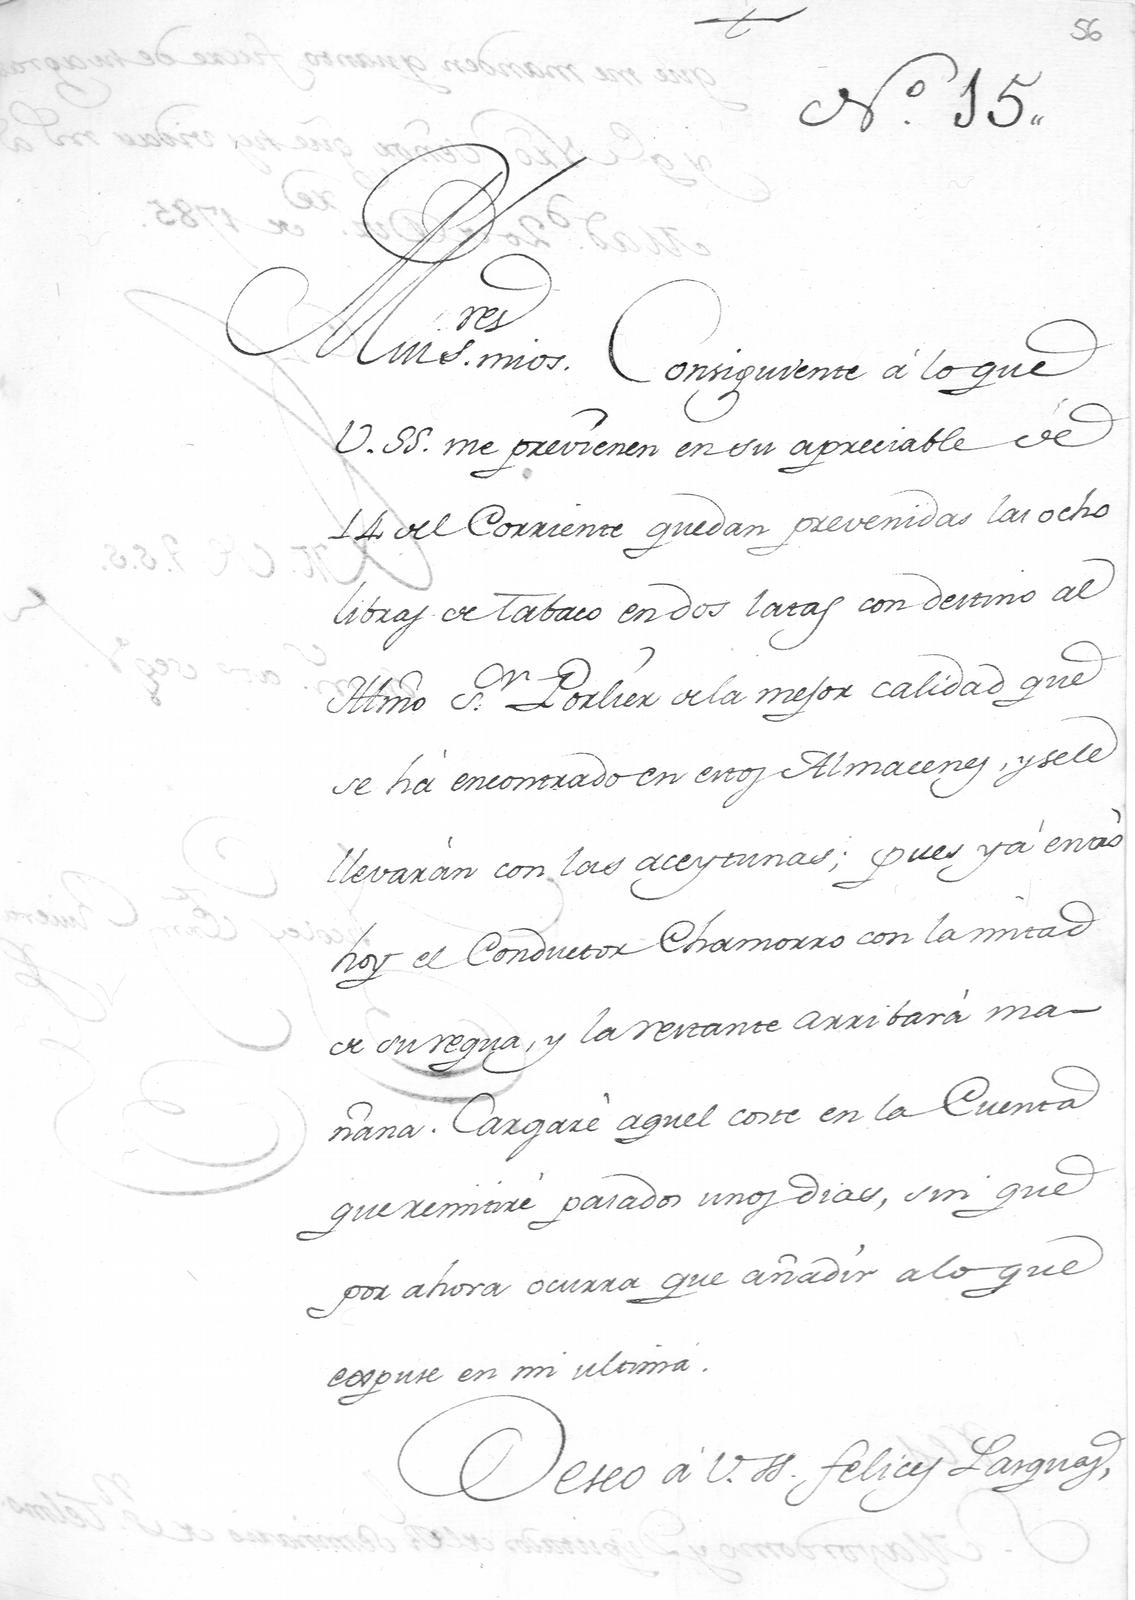 56
N.º 15.,
Mui S.res mios. Consiguiente á lo que
V.SS. me previenen en su apreciable de
14 del Corriente quedan prevenidas las ocho
libras de Tabaco en dos latas con destino al
Illmo S.r Porlier de la mejor calidad que
se há encontrado en estos Almacenes, y se le
llevarán con las aceytunas; pues yá entró
hoy el Conductor Chamorro con la mitad
de su regua, y la restante arribará ma-
ñana. Cargaré aquel coste en la Cuenta
que remitiré pasados unos dias, sin que
por ahora ocurra que añadir a lo que
expuse en mi ultima.
Deseo á V.SS. felices Pasguas,